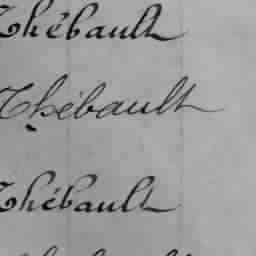 Thébault
Thébault
Thébault